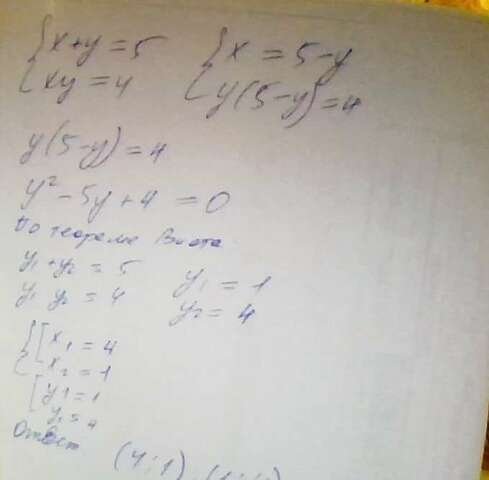 {x+y=5 {x=5-y
{xy=4 {y(5-y)=4
y(5-y)=4
y²-5y+4=0
По теореме Виета
y₁+y₂=5 y₁=1
y₁ y₂=4 y₂=4
{[x₁=4
{[x₂=1
[y1=1
[y₂=4
Ответ
(4;1)